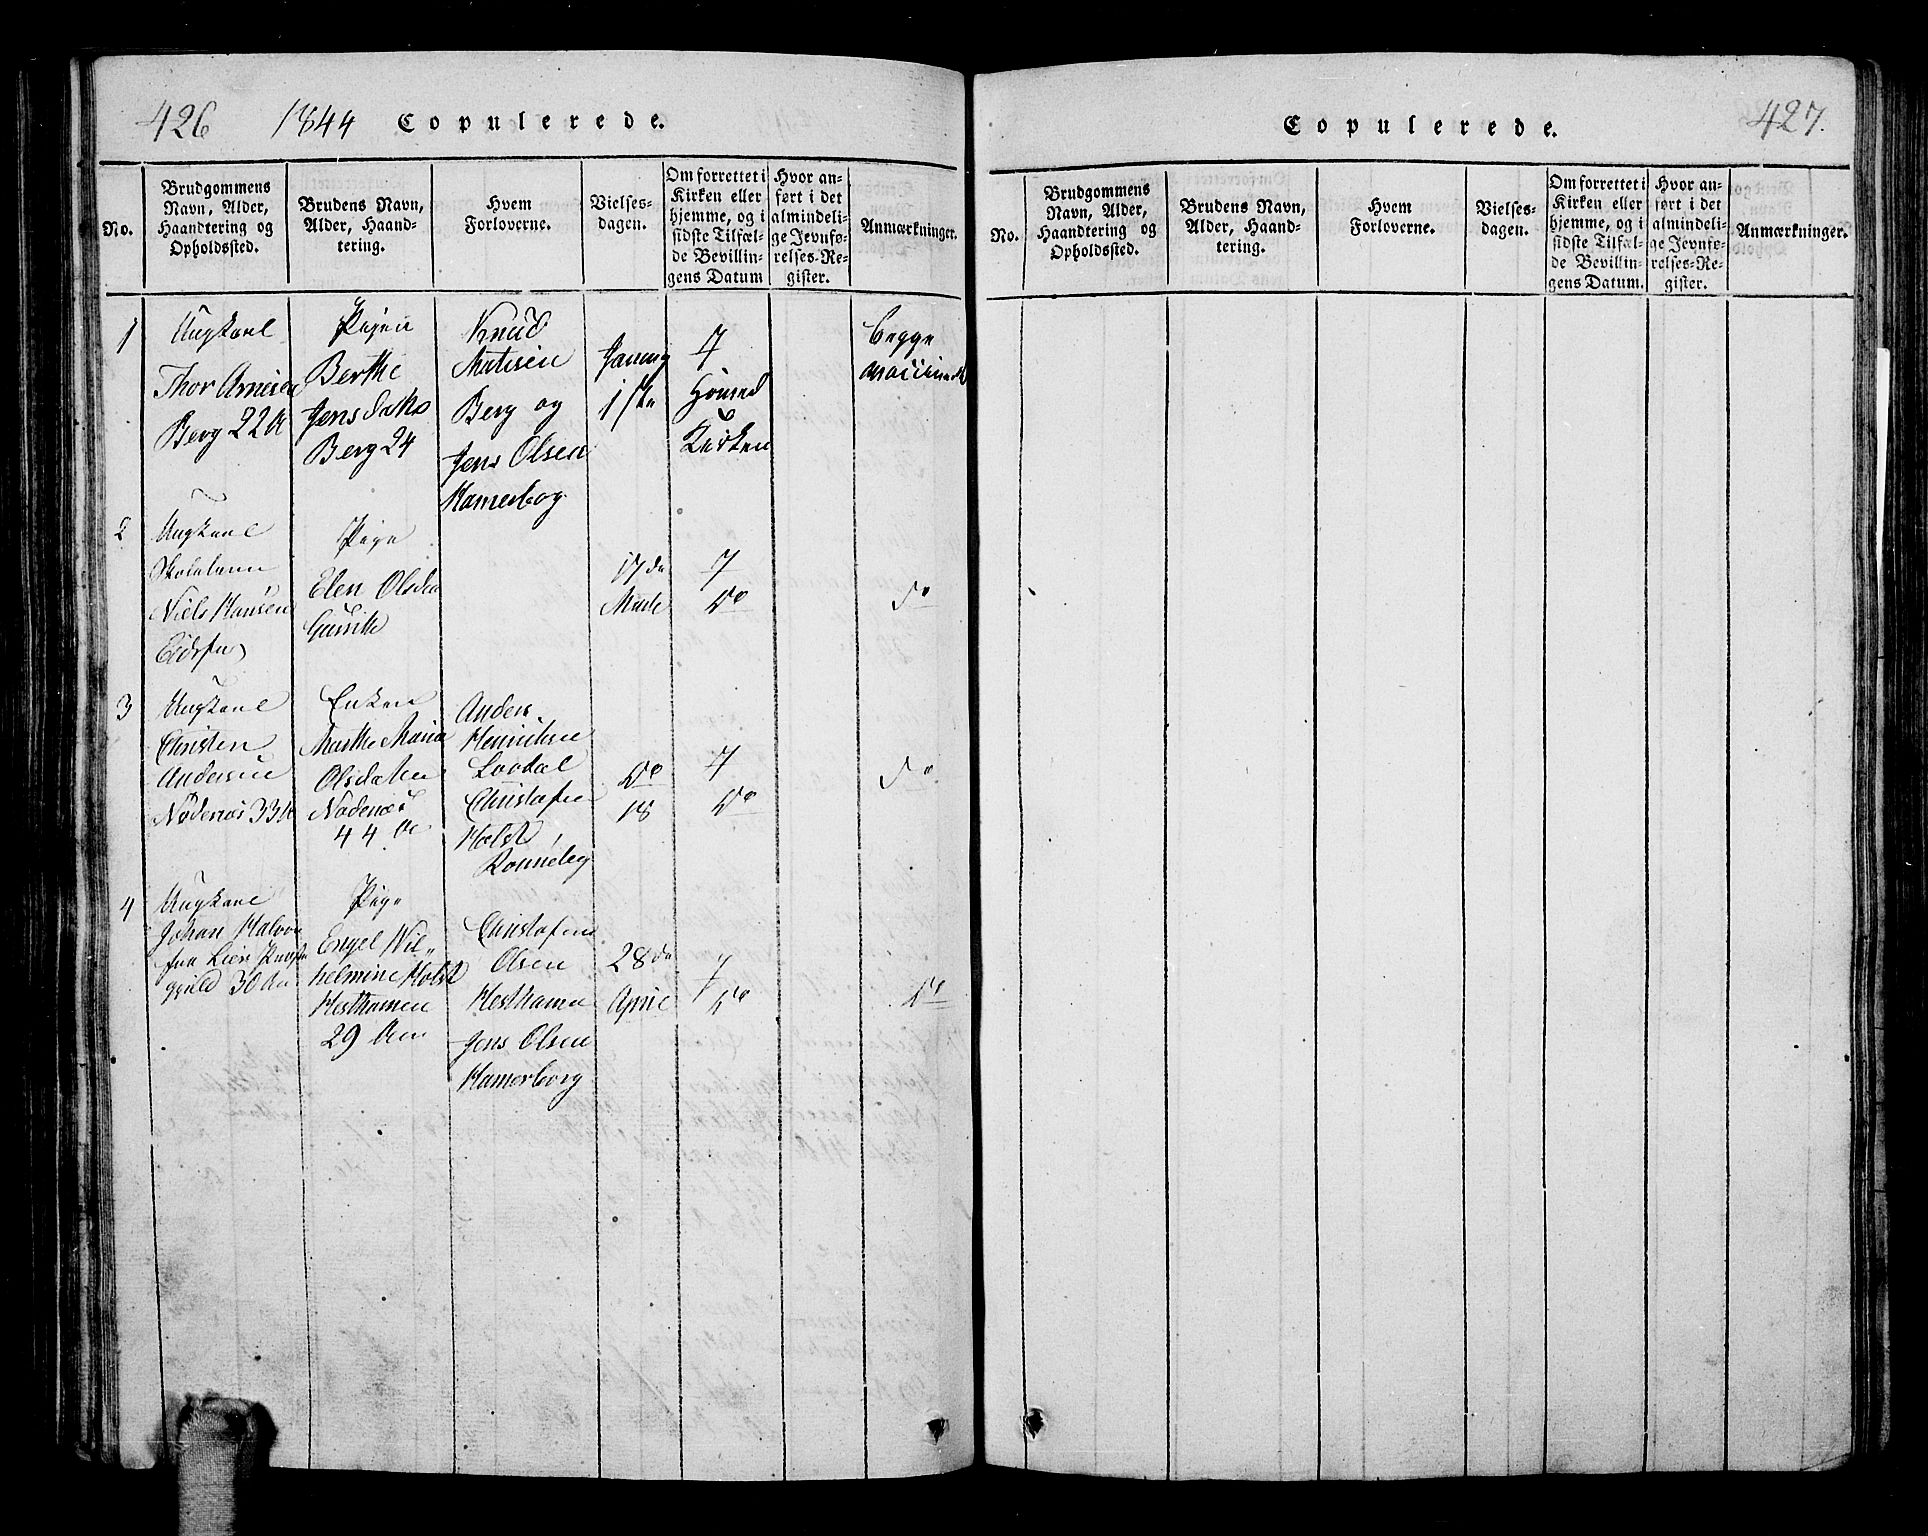 426 1844 Copulerede.
No.
Brudgommens
Navn, Alder,
Haandtering og
Opholdssted.
Brudens Navn,
Alder, Haand-
tering.
Hvem
Forloverne.
Vielses-
dagen.
Om forrettet i
Kirken eller
hjemme, og i
sidste Tilfæl-
de Bevillin-
gens Datum
Hvor an-
ført i det
almindeli-
ge Jevnfø-
relses-Re-
gister.
Anmærkninger.
1
Ungkarl
Thor Arnesen
Berg 22 A
Pigen
Berthe
Jensdats
Berg 24
Knud
Matisen
Berg og
Jens Olsen
Hamerborg
Januar
1ste
I
Kirken
begge
2
Ungkarl
Niels Hansen
Pige
Elen Olsdat
17de
I
do
do
3
Ungkarl
Christen
Andersen
33
Enken
Marthe Maria
Olsdatter
44 Ar
Anders
Henriksen
Christofer
Holst
Rønneberg
do
18
I
do
do
4
Ungkarl
Johan Halvor
fra Lier Præste
gjeld 30 Aar
Pige
Engel Wil-
helmine Holst
Hesthamen
29 Aar
Christofer
Olsen
Hesthamer
Jens Olsen
Hamerborg
28de
April
I
do
do
Copulerede. 427.
No.
Brudgommens
Navn, Alder,
Haandtering og
Opholdssted.
Brudens Navn,
Alder, Haand-
tering.
Hvem
Forloverne.
Vielses-
dagen.
Om forrettet i
Kirken eller
hjemme, og i
sidste Tilfæl-
de Bevillin-
gens Datum.
Hvor an-
ført i det
almindeli-
ge Jevnfø-
relses-Re-
gister.
Anmærkninger.